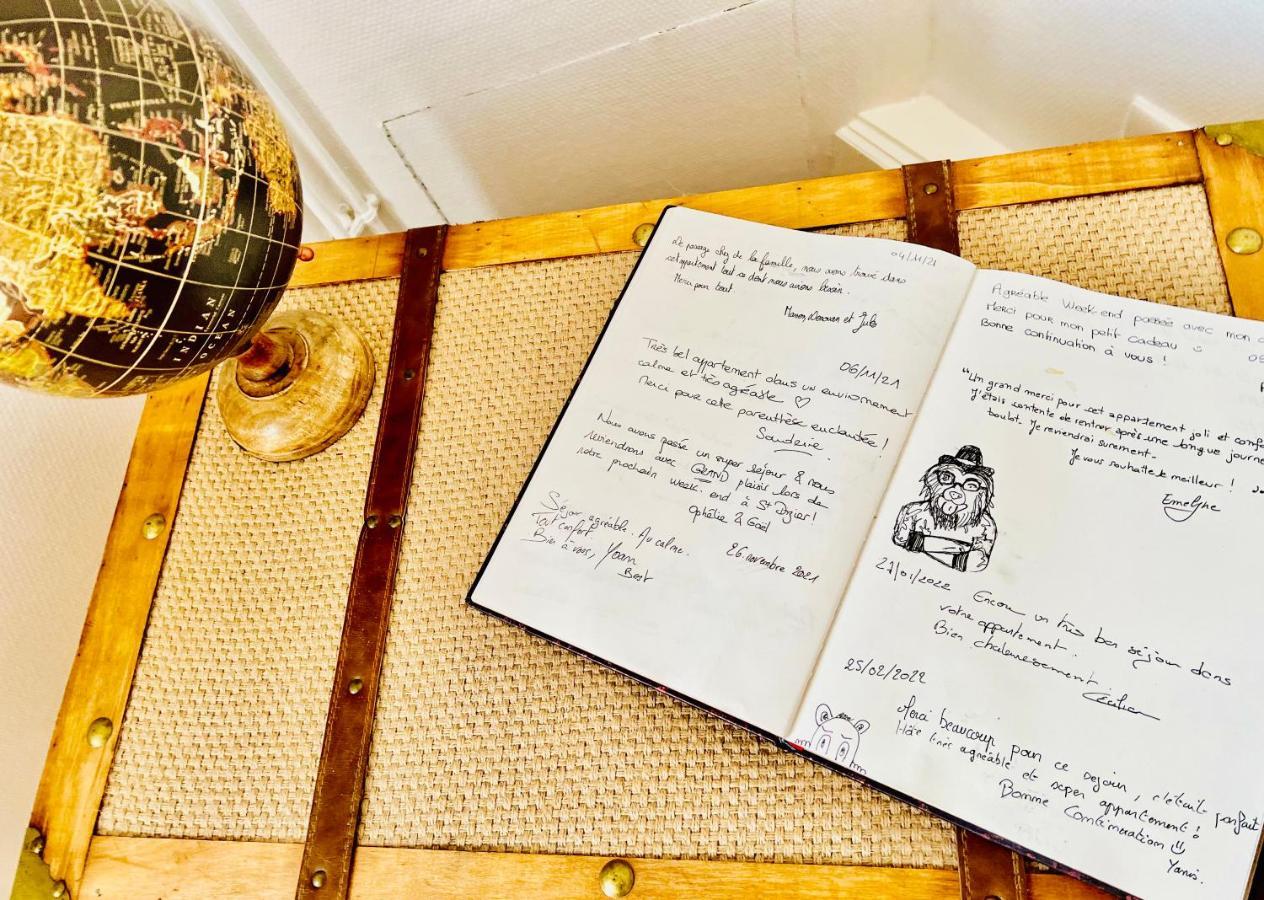 INDIAN
OCEAN
04/11/21
De passage chez de la famille, nous avons trouvé dans
cet appartement tout ce dont nous avions besoin.
Merci pour tout.
Manon, et Jules
06/11/21
Très bel appartement dans un environnement
calme et très agréable ♡
Merci pour cette parenthèse enchantée !
Sandrine.
Nous avons passé un super séjour & nous
reviendrons avec GRAND plaisir lors de
notre prochain week-end à St Dizier!
Ophélie & Gaël
26 novembre 2021
Séjour agréable. Au calme.
Tout confort.
Bien à vous, Yoann
Best
Agréable Week-end passée avec mon
Merci pour mon petit cadeau
Bonne continuation à vous !
"Un grand merci pour cet appartement joli et
J'étais contente de rentrer après une longue
boulot. Je reviendrai surement.
Je vous souhaite le meilleur !
Emelyne
27/01/2022 Encore un très bon séjour dans
votre appartement.
Bien chaleureusement
25/02/2022
Merci beaucoup pour ce sejour, c'était parfait
Hôte très agréable et super appartement !
Bonne Continuation
Yanis.